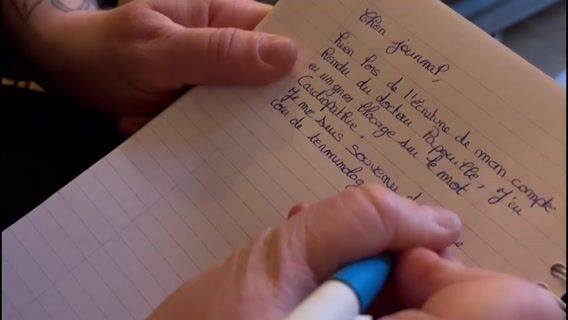 Cher journal,
hier lors de l'écriture de mon compte
Rendu du docteur Papouille, j'ai
eu un gros blocage sur le mot
Cardiopathie.
Je me suis souvenu d
de terminolog